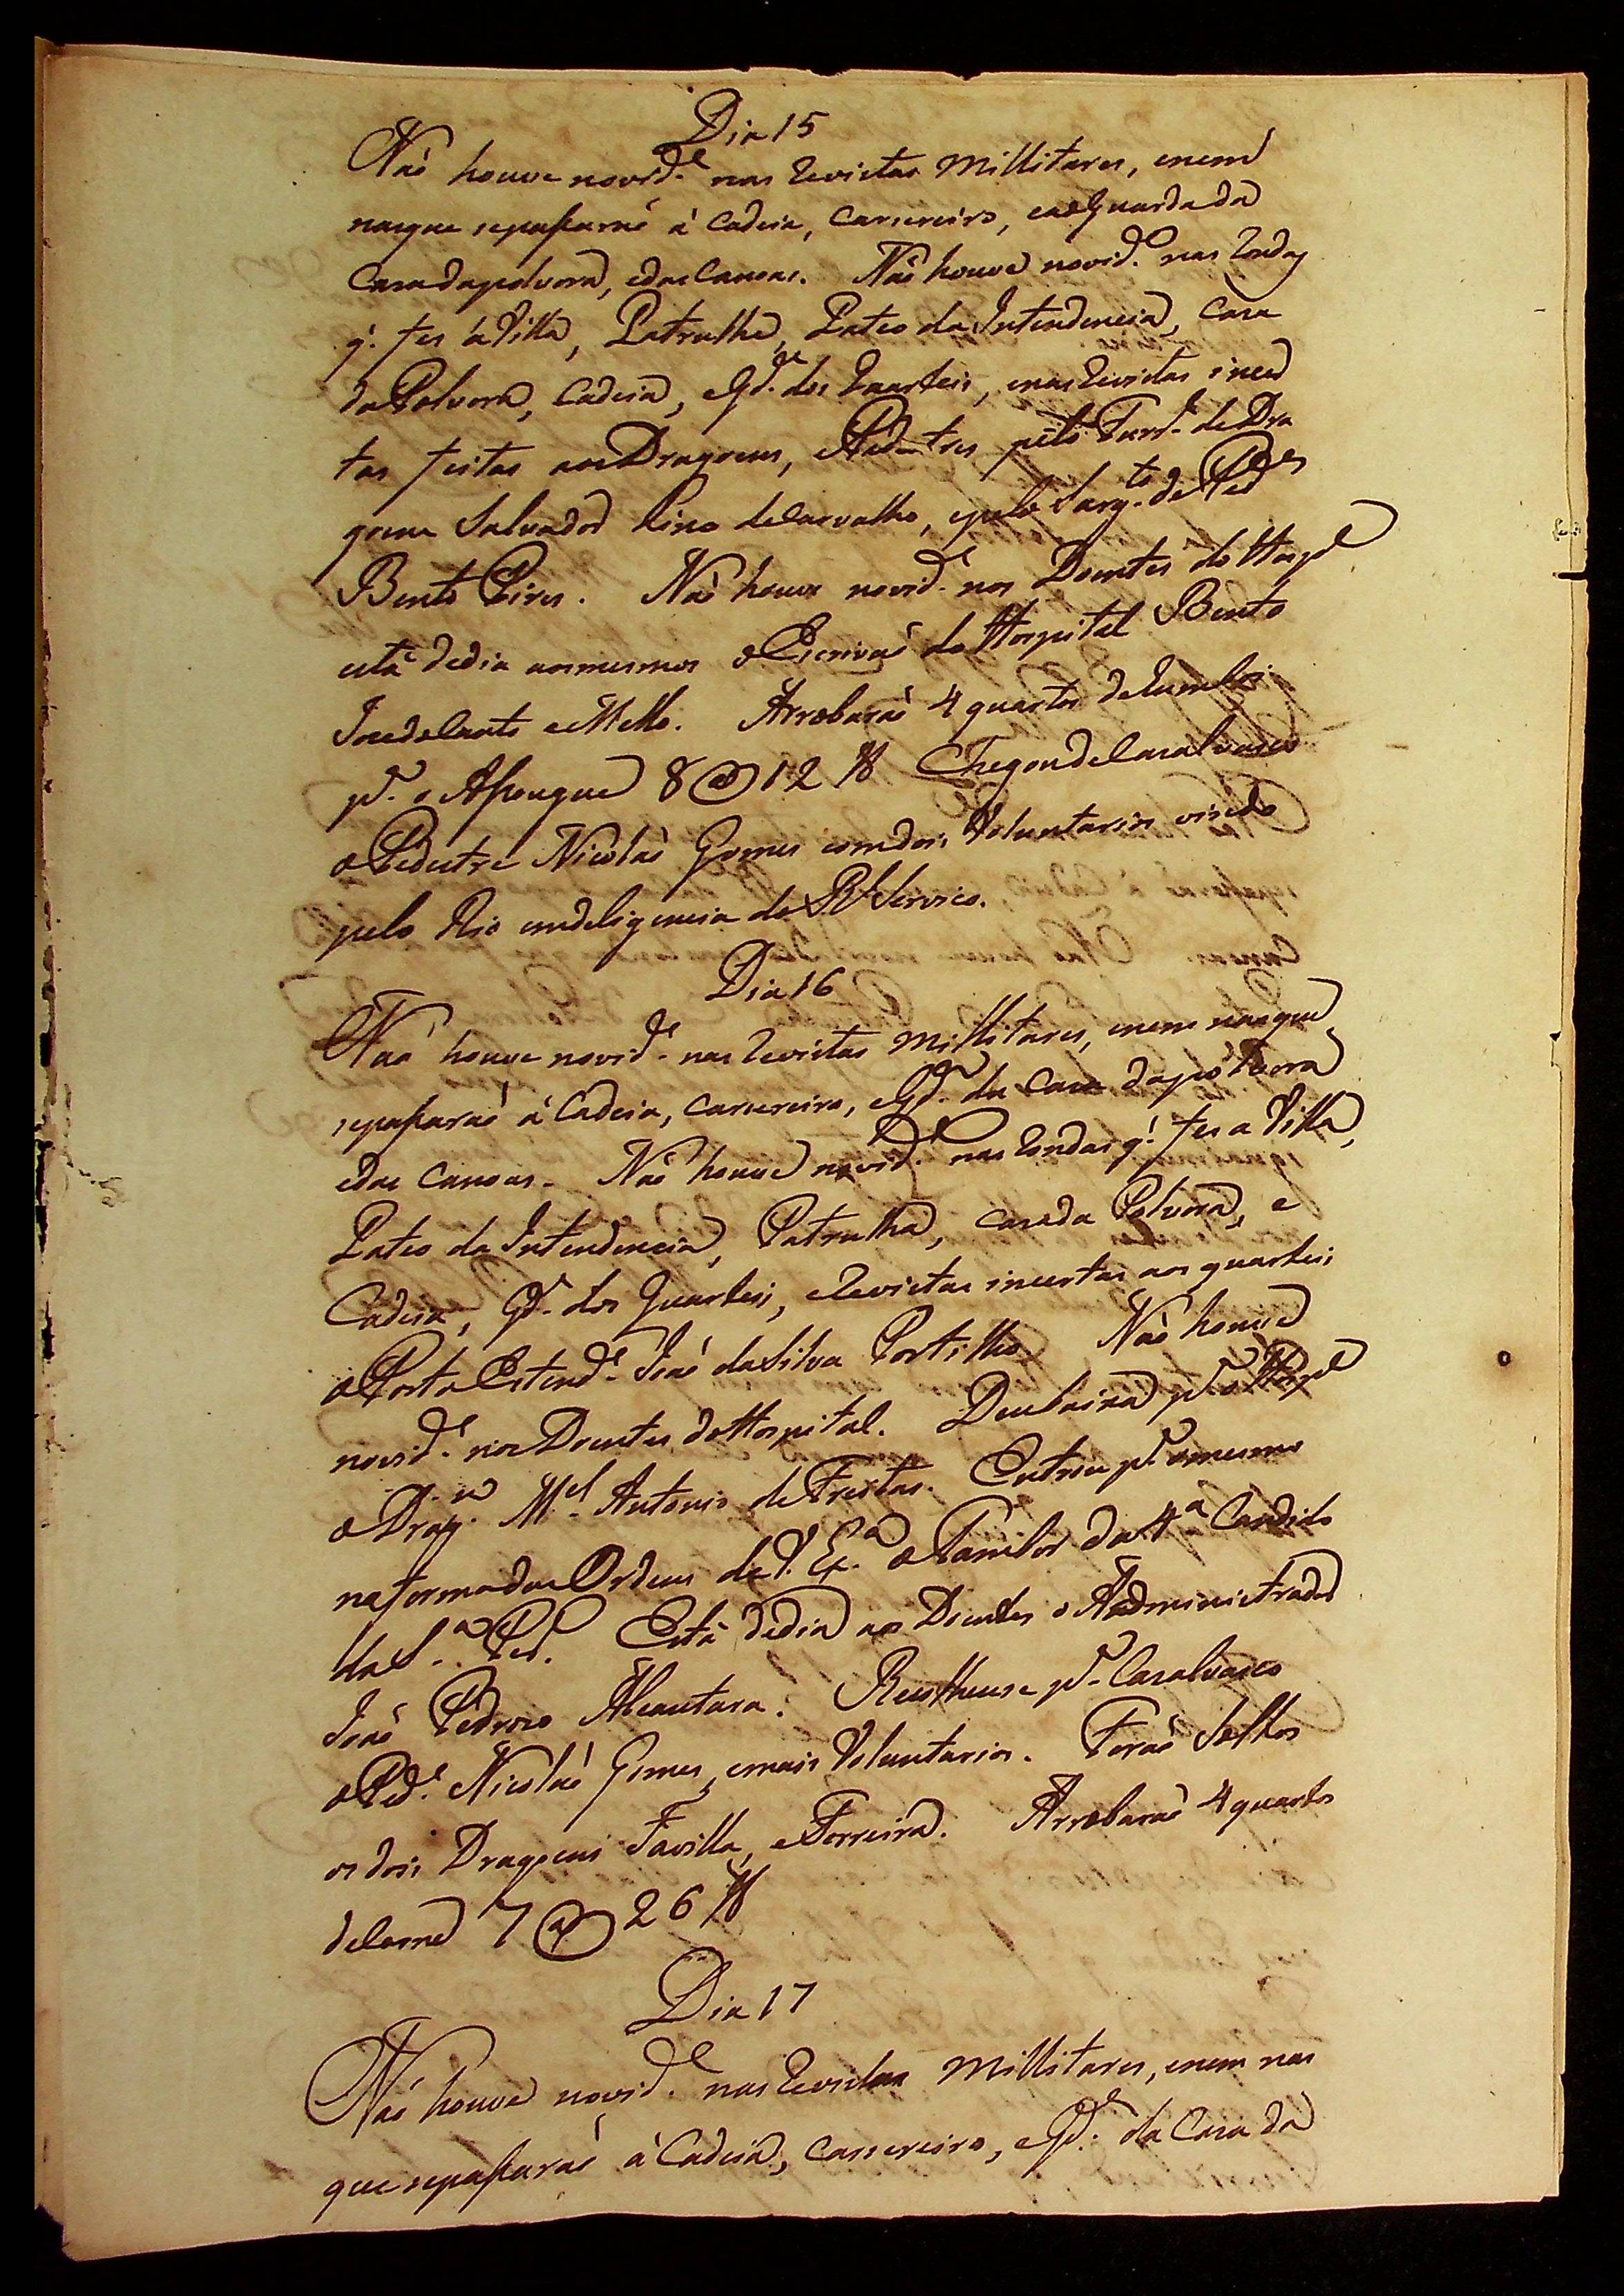 Dia 15
Não houve novid.e nas Revistas Millitares, enem
nasque sepassarão á Cadeia, Carsereiro, eaoGuardada
Casadapolvora, edasCanoas. Não houve novid.e nas Rondas
q.' fes áVilla, Patrulha, Pateo da Intendencia, Casa
daPolvora, Cadeia, eGd.a dos Quarteis, enasRevistas incer
tas feitas aosDragoens, ePedestres pello Furr.l deDra
goens Salvador Lino deCarvalho, epelo Sarg.to dePed.es
Bento Pires. Não houve novid.e nos Doentes do Hosp.l
está dedia aosmesmos oEscrivaõ do Hospital Bento
JosedoCanto eMello. Arrobarão 4 quartos de
p.a o Assougue 8 @ 12 lb Chegou deCasalvasco
oPedestre Nicoláo Gomes comdois Voluntarios vindo
pelo Rio emdeligencia do R.l Servico.
Dia 16
Não houve novid.e nas Revistas Millitares, enem nasque
sepassarão á Cadeia, Carsereiro, eGd.a da Casa dapolvora
edas Canoas. Não houve novid.e nas Rondas q.' fes a Villa,
Pateo da Intendencia, Patrulha, casada Polvora, e
Cadeia, Gd.a dos Quarteis, eRevistas incertas aos quarteis
oPorta Estend.e João daSilva Portilho Não houve
novid.e nos Doentes doHospital. Deubaixa p.a o Hosp.l
o Drag.m M.el Antonio deFreitas. Entrou p.a omesmo
naformadas Ordens deV. Ex.a oTambor da 4.a Candido
da S.a Ped. Está dedia aos Doentes o Administrador
João Pedrozo Alcantara. Recolheuse p.a Casalvasco
oPed.e Nicoláo Gomes, emais Voluntarios. Forão Soltos
os dois Dragoens Favilla, eFerreira. Arrobarão 4 quartos
deCarne 7 @ 26 lb
Dia 17
Não houve novid.e nas Revistas Millitares, enem nas
que sepassarão á Cadeia, Carsereiro, eGd.a da Casa da